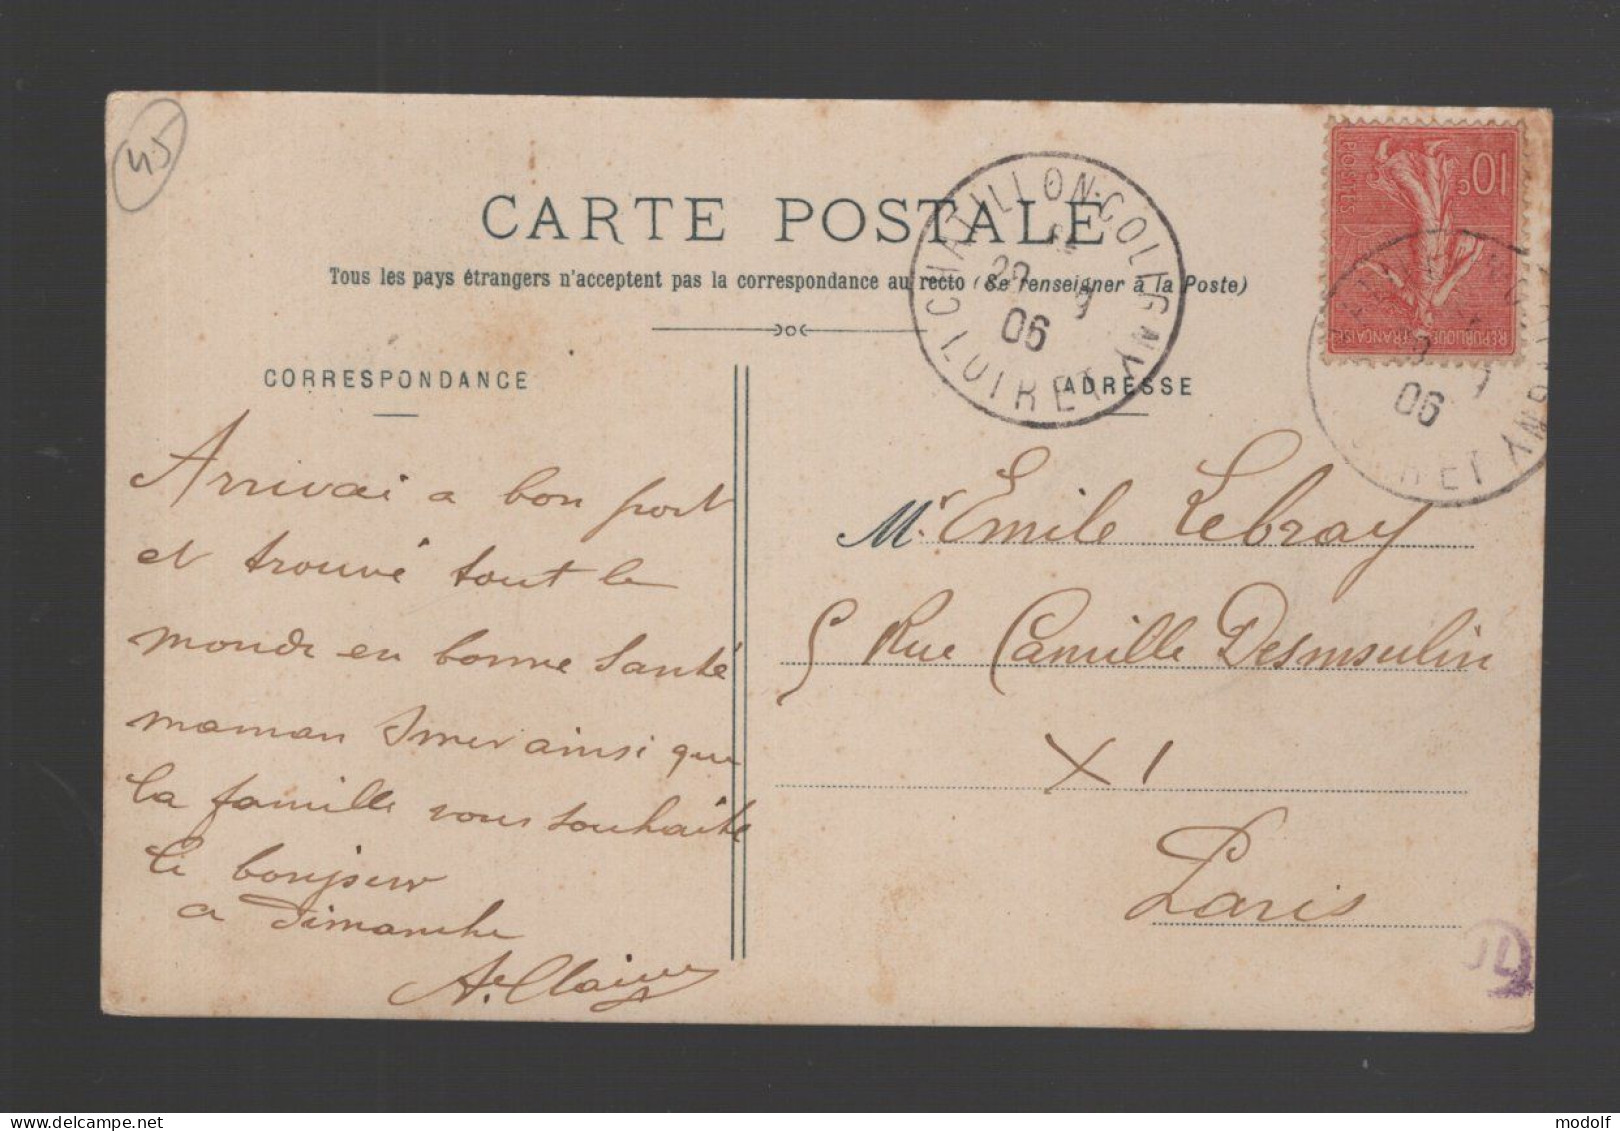 45
CARTE POSTALE
Tous les pays étrangers n'acceptent pas la correspondance au recto (Se renseigner à la Poste)
CORRESPONDANCE
ADRESSE
CHATILLON-COLIGNY
LOIRET
06
10c
POSTES
REPUBLIQUE FRANÇAISE
06
Arrivai a bon port
et trouvé tout le
monde en bonne Santé
maman ainsi que
la famille vous souhaite
le bonjour
a Dimanche
Mr. Emile Lebray
5 Rue Camille Desmoulin
XI
Paris
delcampe.net
modolf